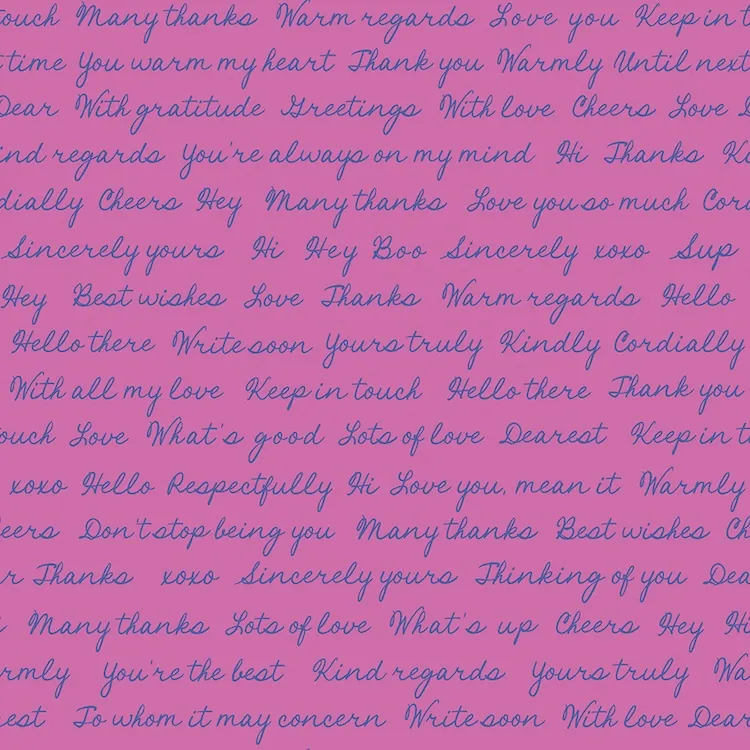 touch Many thanks Warm regards Love you Keep in t
time You warm my heart Thank you Warmly Until next
Dear With gratitude Greetings With love Cheers Love D
ind regards You're always on my mind Hi Thanks Ki
dially Cheers Hey Many thanks Love you so much Cord
Sincerely yours Hi Hey Boo Sincerely xoxo Sup
Hey Best wishes Love Thanks Warm regards Hello
Hello there Write soon Yours truly Kindly Cordially
With all my love Keep in touch Hello there Thank you
ouch Love What's good Lots of love Dearest Keep in t
xoxo Hello Respectfully Hi Love you, mean it Warmly
eers Don't stop being you Many thanks Best wishes Ch
r Thanks xoxo Sincerely yours Thinking of you Dea
Many thanks Lots of love What's up Cheers Hey Hi
rmly You're the best Kind regards Yours truly Wa
rest To whom it may concern Write soon With love Dear